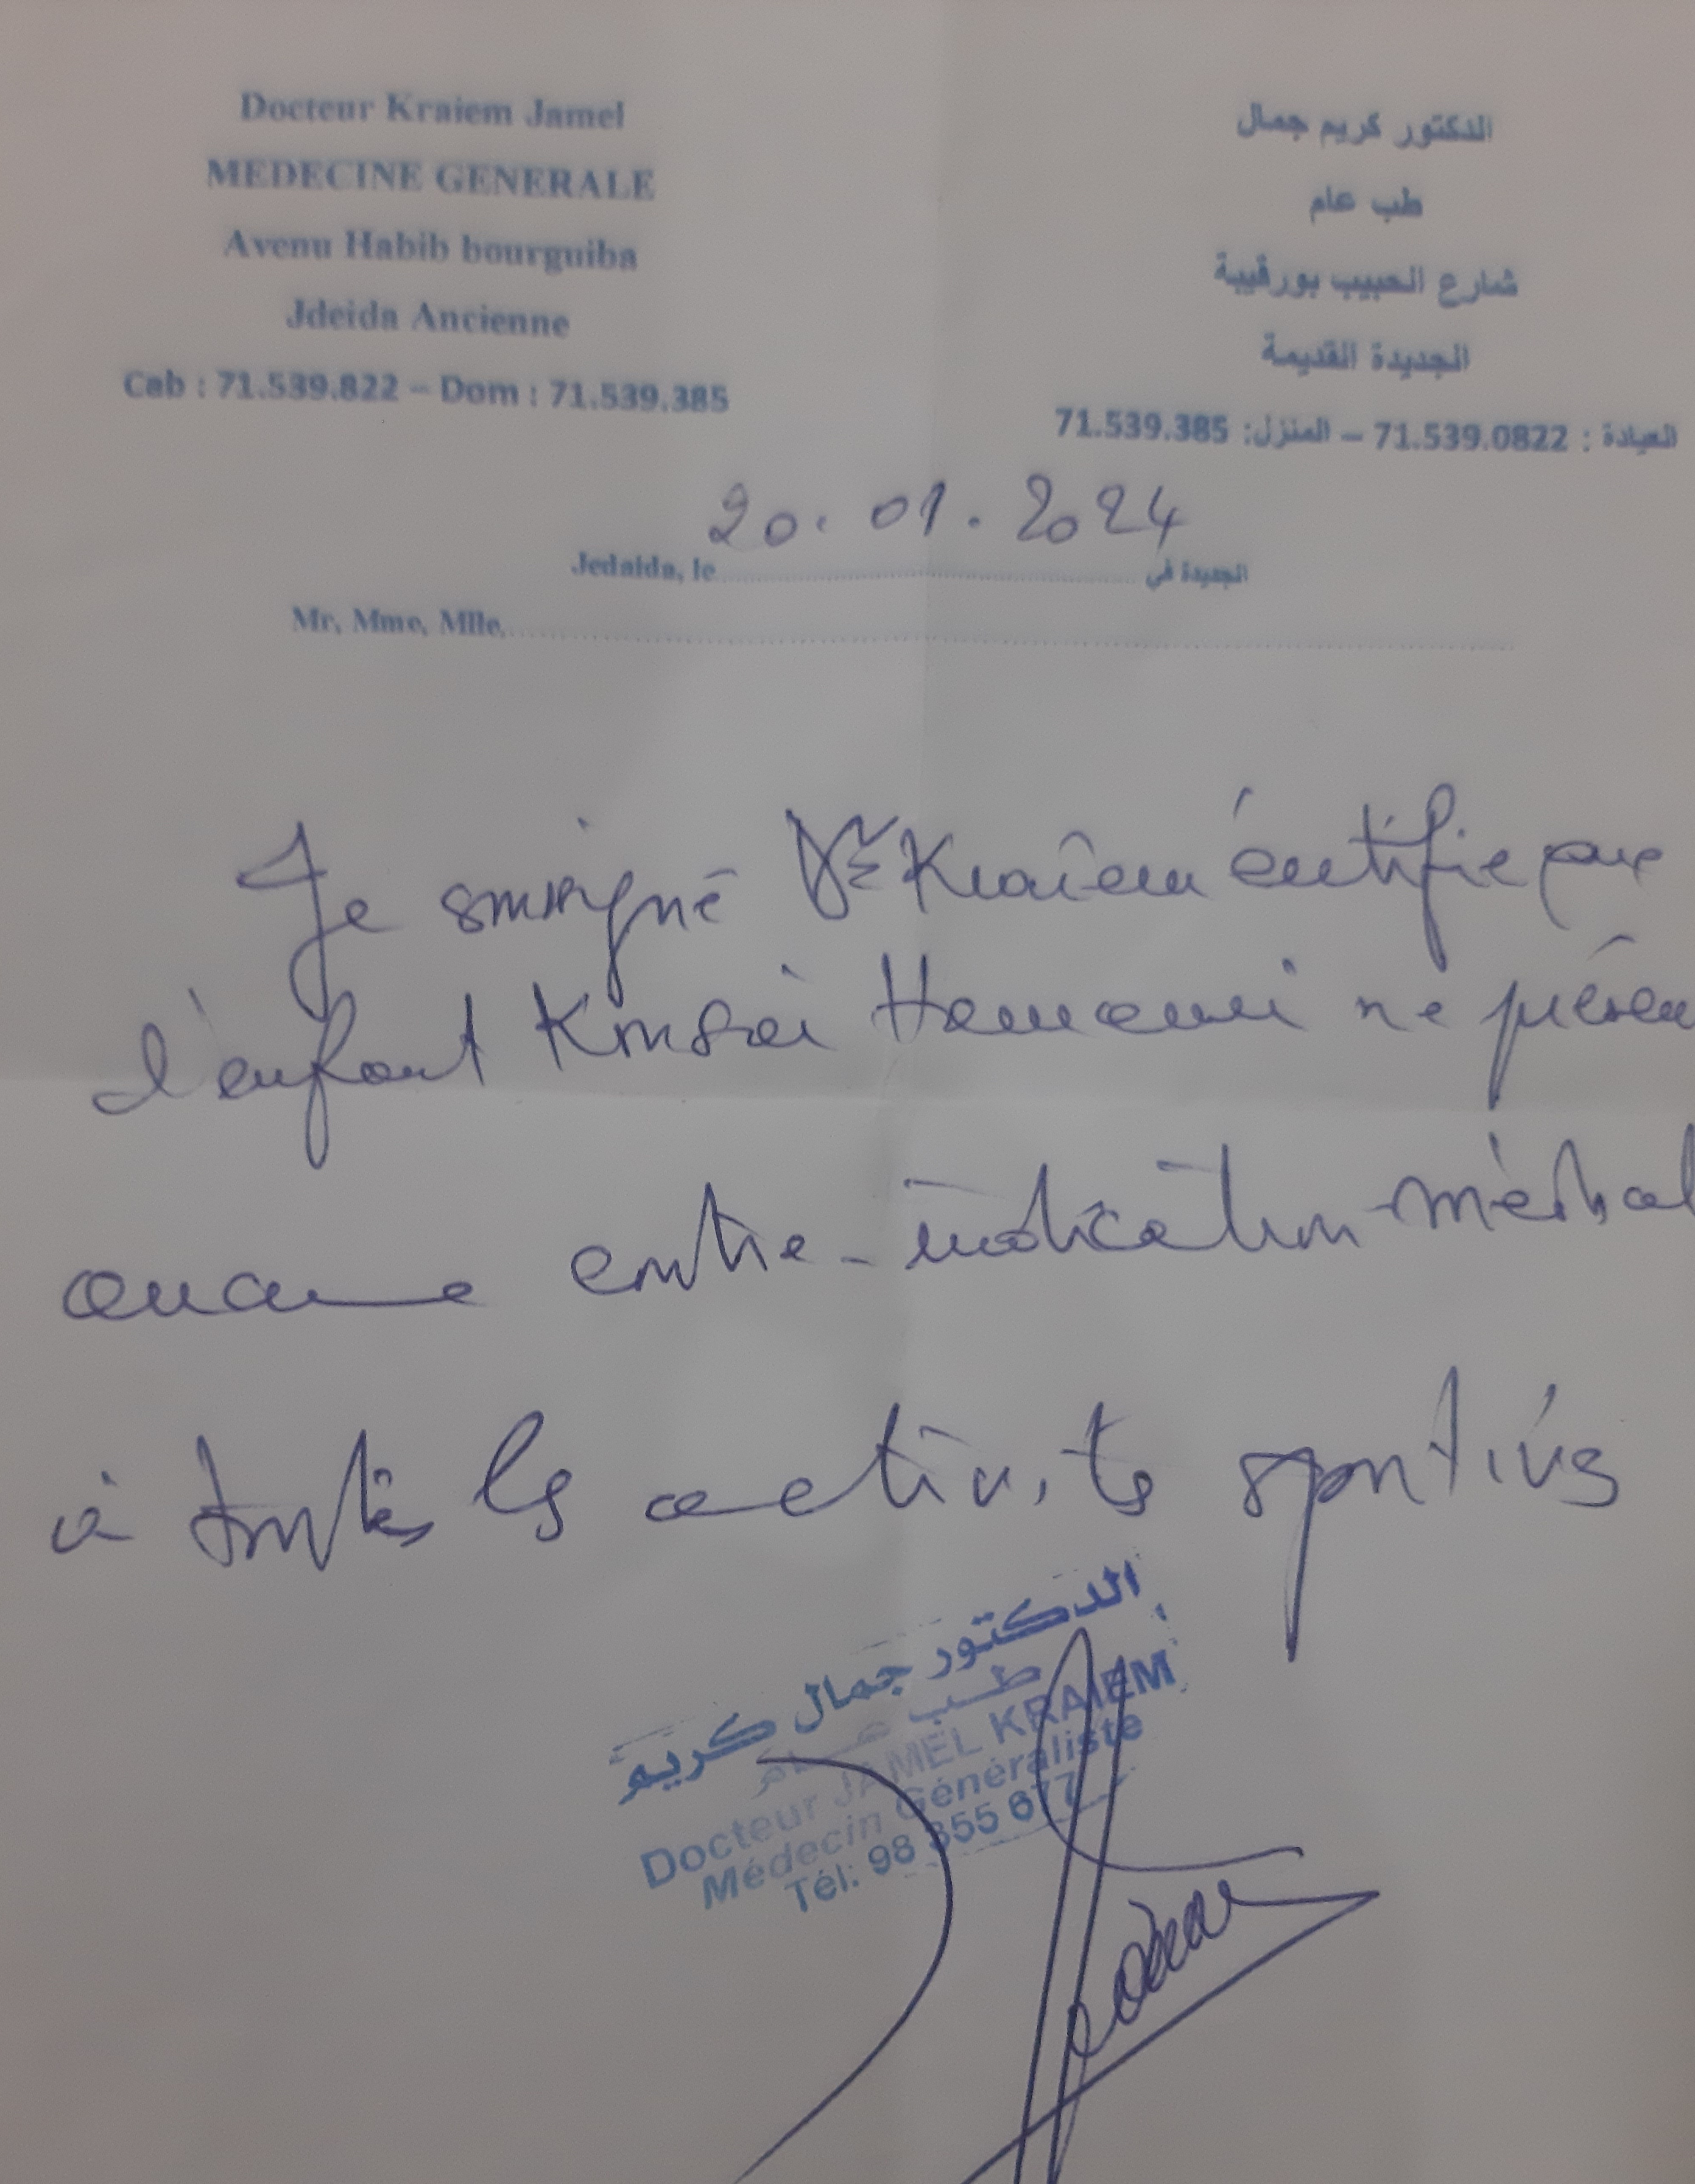 Docteur Kraiem Jamel
MEDECINE GENERALE
Avenu Habib bourguiba
Jdeida Ancienne
Cab : 71.539.822 – Dom : 71.539.385
الدكتور كريم جمال
طب عام
شارع الحبيب بورقيبة
الجديدة القديمة
العيادة : 71.539.0822 – المنزل: 71.539.385
20. 01. 2024
Jedaida, le الجديدة في
Mr, Mme, Mlle,
Je soussigné Dr Kraiem certifie que
l'enfant Hamami ne présen
aucune contre-indication médical
à toutes les activités sportives
الدكتور جمال كريم
طب عام
Docteur JAMEL KRAIEM
Médecin Généraliste
Tél: 98 355 677